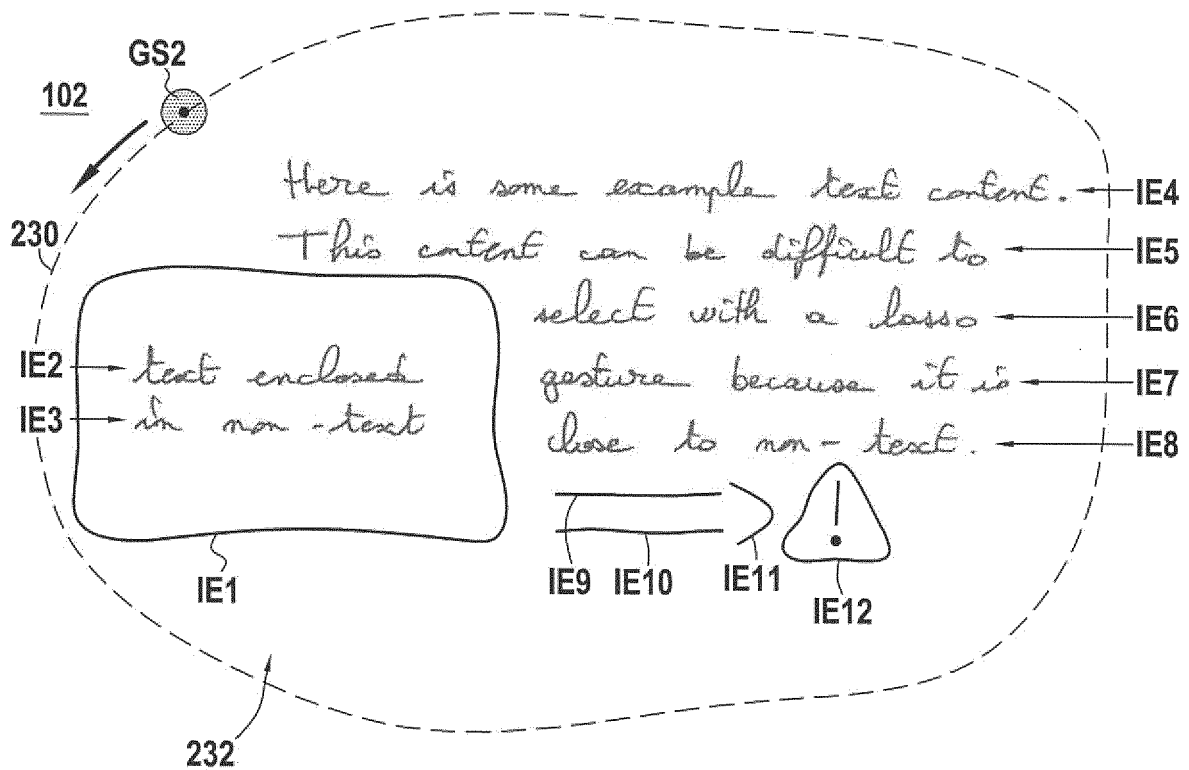 GS2
102
Here is some example text content. IE4
230
This content can be difficult to IE5
select with a lasso IE6
IE2 text enclosed
gesture because it is IE7
IE3 in non-text
close to non-text. IE8
IE9 IE10 IE11
IE1
IE12
232